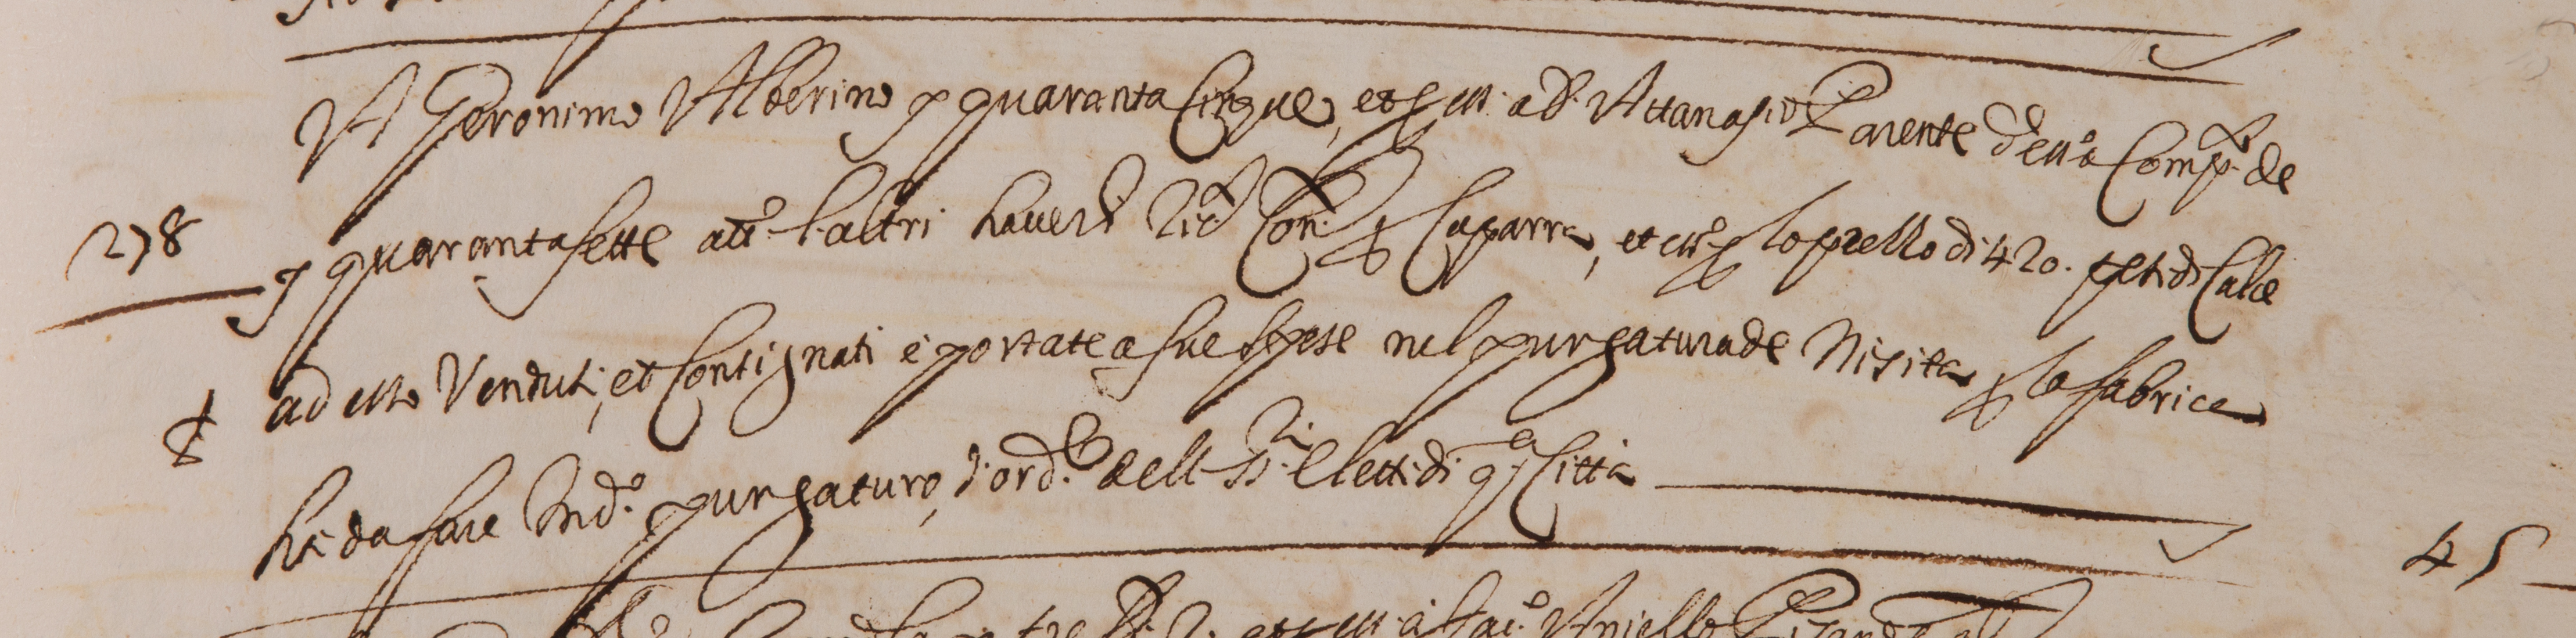 A Geronimo Alberino d. quaranta Cinque, et per esso a D. Attanasio Parente d.e a Comp.to de
278 d. quaranta sette att.o l'altri haverli ric.ti Con. per Caparra, et ss.o per lo prezzo di 420. pesi di Calce
ad esso Venduti, et Consignati e portate a sue spese nel purgaturo de Nisita per la fabrica
ha da fare in d.o purgaturo, d'ord.e dell SS.ri Eletti di q.a Città
45